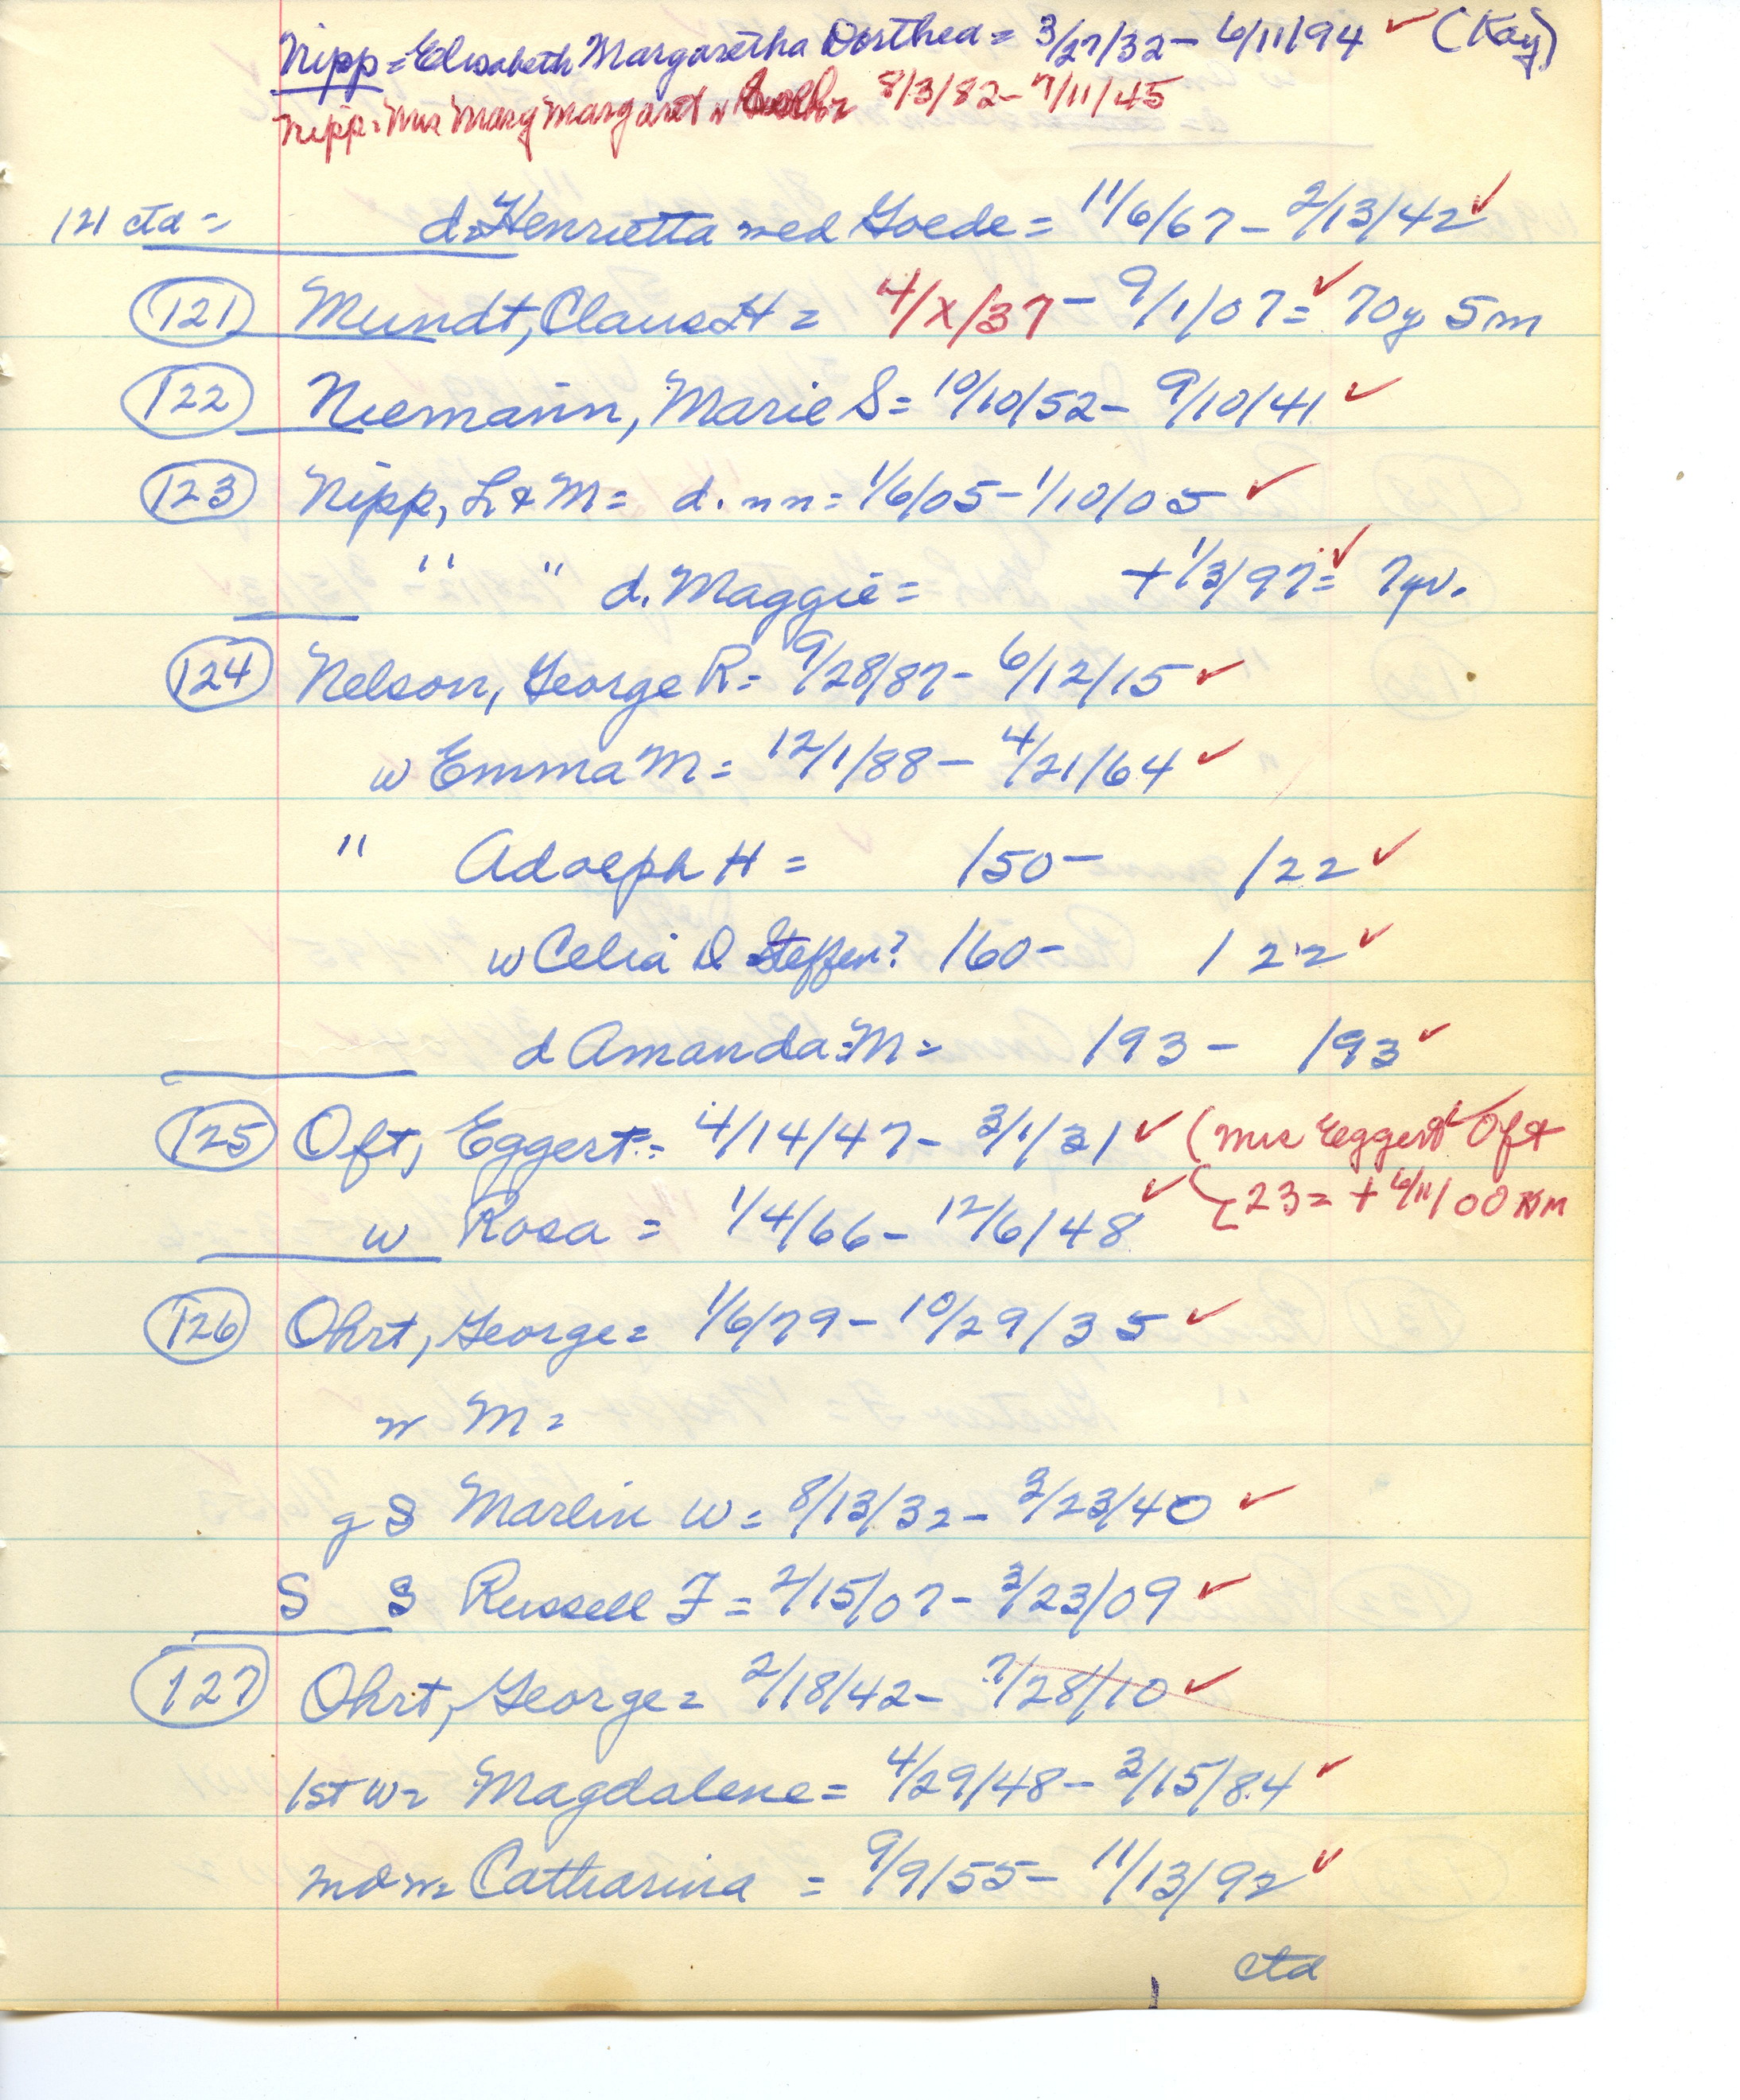 Nipp = Elisabeth Margaretha Dorthea = 3/27/32 - 6/11/94 ✓ (Kay)
Nipp = Mrs Mary Margaret 8/3/82 - 7/11/45
121 ctd = d. Henrietta med Goede = 11/6/67 - 2/13/42 ✓
121 Mundt, Claus H = 4/x/37 - 9/1/07 = ✓ 70y 5m
122 Niemann, Marie S = 10/10/52 - 9/10/41 ✓
123 Nipp, L & M = d. nn = 1/6/05 - 1/10/05 ✓
" " d. Maggie = + 1/3/97 = ✓
124 Nelson, George R = 9/28/87 - 6/12/15 ✓
w Emma M = 12/1/88 - 4/21/64 ✓
" Adolph H = /50 - /22 ✓
w Celia D Steffen? /60 - / 22 ✓
d Amanda M = /93 - /93 ✓
125 Oft, Eggert = 4/14/47 - 3/1/31 ✓ (Mrs Eggert Oft ✓
w Rosa = 1/4/66 - 12/6/48 ✓ 23 = + 6/11/00 nm
126 Ohrt, George = 1/6/79 - 10/29/35 ✓
w M =
g S Marlin W = 8/13/32 - 3/23/40 ✓
S S Russell F = 2/15/07 - 3/23/09 ✓
127 Ohrt, George = 2/18/42 - 7/28/10 ✓
1st w = Magdalene = 4/29/48 - 3/15/84 ✓
Catharina = 9/9/55 - 11/13/92 ✓
ctd